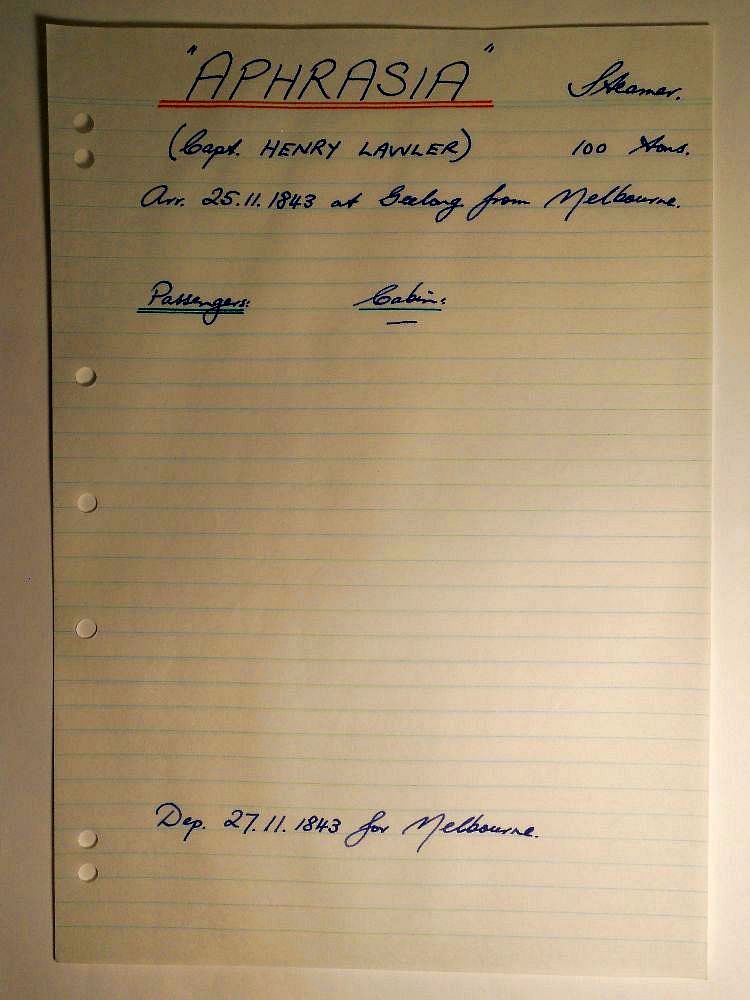 "APHRASIA" Steamer.
(Capt. HENRY LAWLER) 100 tons.
Arr. 25.11.1843 at Geelong from Melbourne.
Passengers: Cabin:
—
Dep. 27.11.1843 for Melbourne.